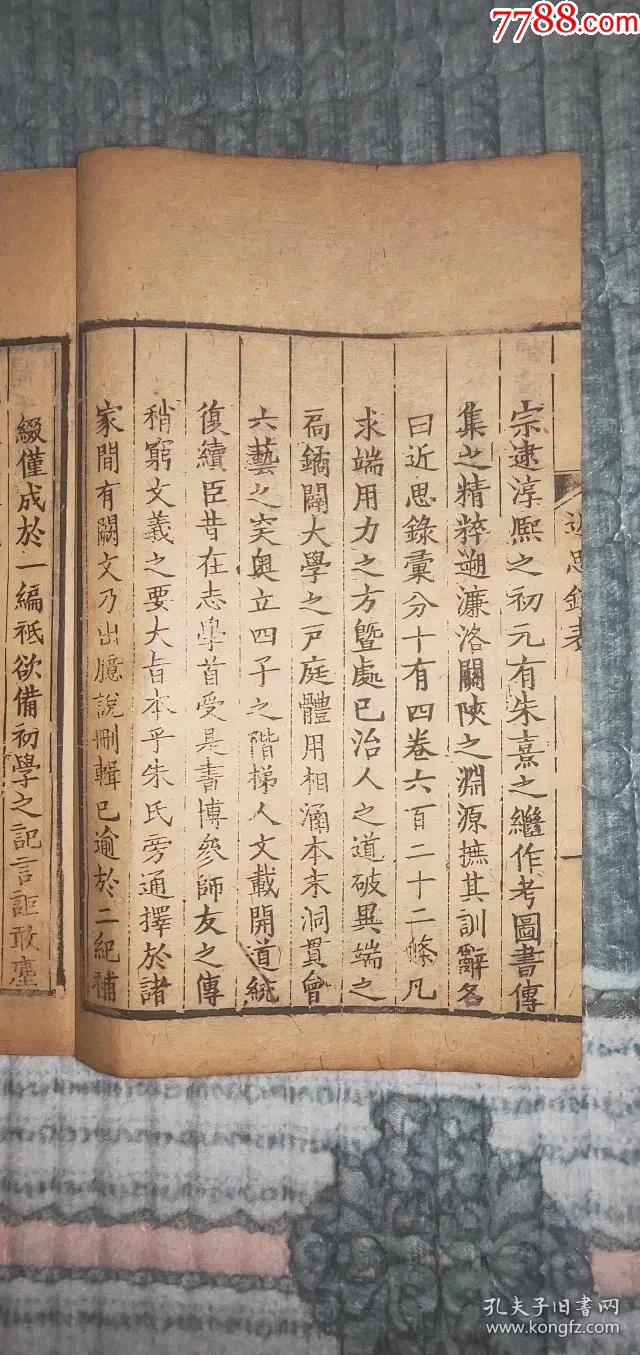 7788.com
近思錄表
一
宗逮淳熙之初元有朱熹之繼作考圖書傳
集之精粹遡濂洛關陝之淵源摭其訓辭名
曰近思錄彙分十有四卷六百二十二條凡
求端用力之方暨處已治人之道破異端之
扃鐍闢大學之戸庭體用相涵本末洞貫會
六藝之突奥立四子之階梯人文載開道統
復續臣昔在志學首受是書博參師友之傳
稍窮文義之要大旨本乎朱氏旁通擇於諸
家間有闕文乃出臆說刪輯已逾於二紀補
綴僅成於一編祗欲備初學之記言詎敢塵
孔夫子旧书网
www.kongfz.com